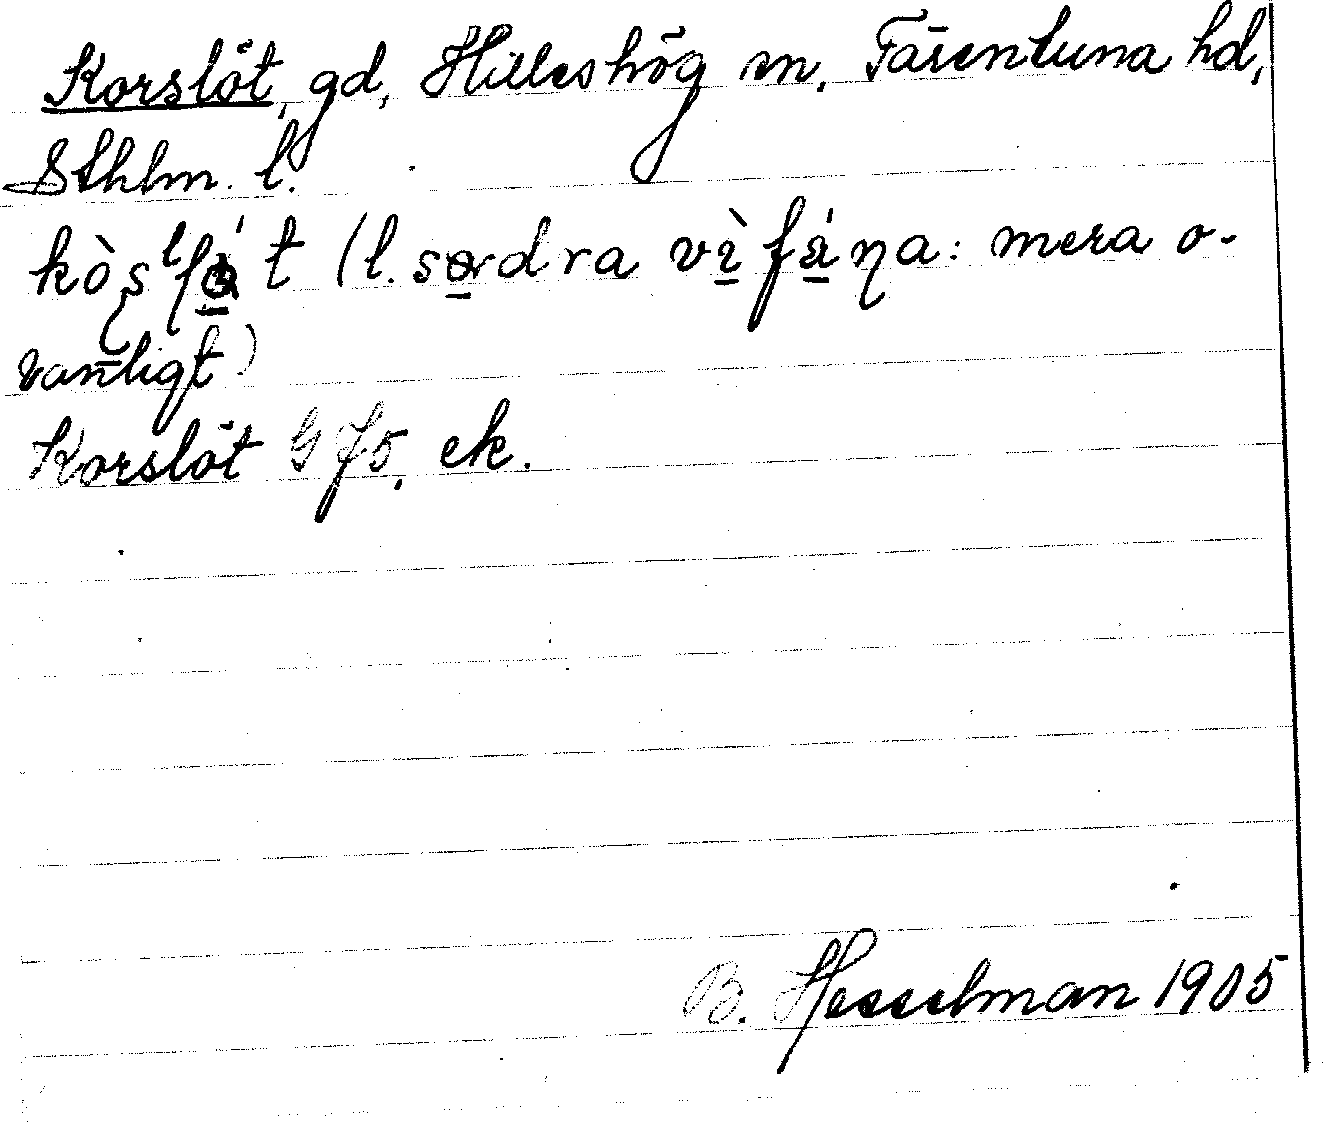 Korslöt, gd, Hilleshög sn, Färentuna hd,
Sthlm. l.
(l. sødra : mera o-
vanligt)
Korslöt ek.
B. Hesselman 1905